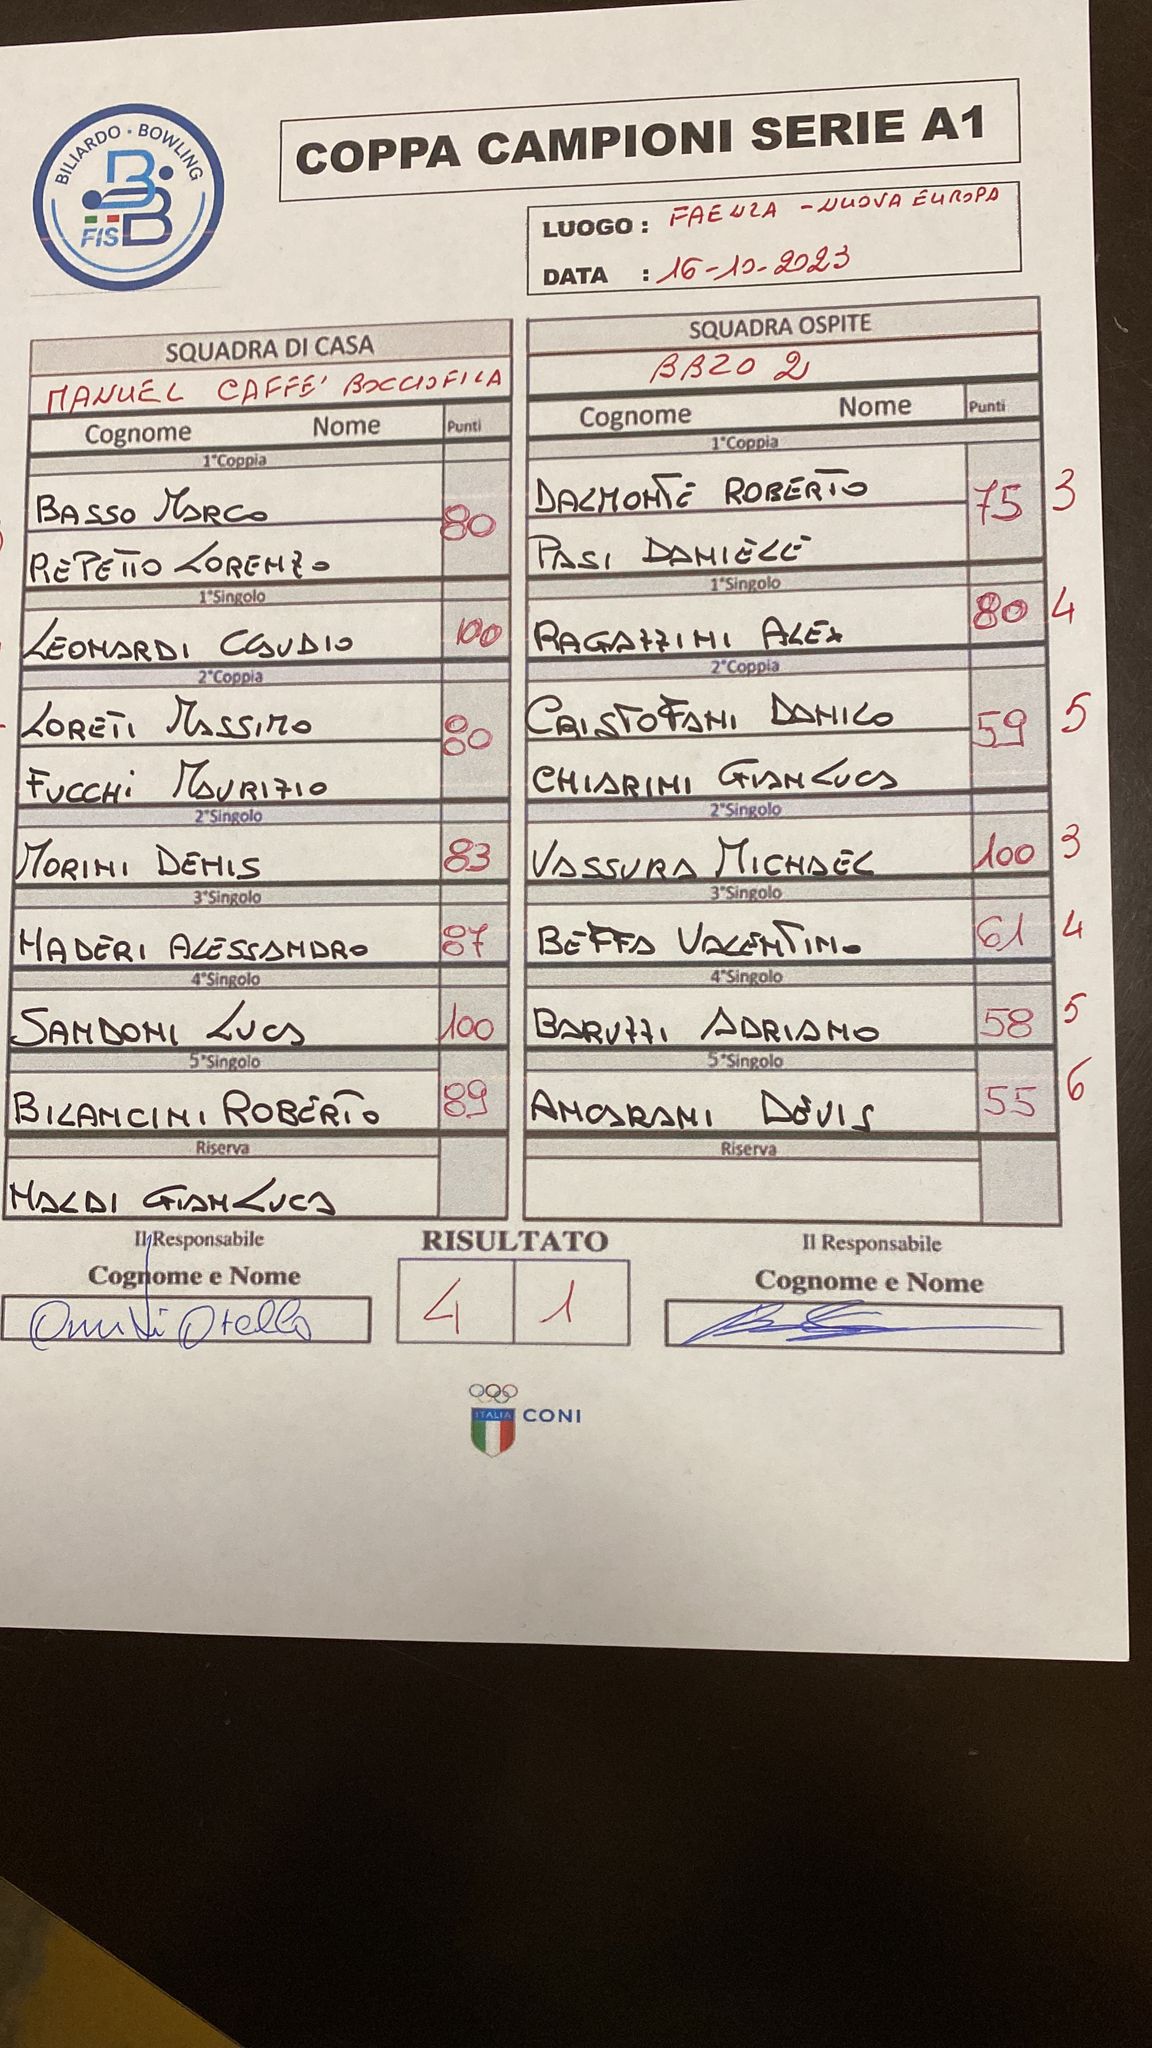 BILIARDO • BOWLING
FISBB
COPPA CAMPIONI SERIE A1
LUOGO : FAENZA - NUOVA EUROPA
DATA : 16-10-2023
SQUADRA DI CASA
MANUEL CAFFE' BOCCIOFILA
Cognome Nome Punti
1°Coppia
BASSO MARCO
REPETTO LORENZO
80
1°Singolo
LEONARDI CLAUDIO 100
2°Coppia
LORETI MASSIMO
FUCCHI MAURIZIO
80
2°Singolo
MORINI DENIS 83
3°Singolo
NADERI ALESSANDRO 87
4°Singolo
SANDONI LUCA 100
5°Singolo
BILANCINI ROBERTO 89
Riserva
NALDI GIANLUCA
SQUADRA OSPITE
BBZO 2
Cognome Nome Punti
1°Coppia
DALMONTE ROBERTO
PASI DANIELE
75 3
1°Singolo
RAGAZZINI ALEX 80 4
2°Coppia
CRISTOFANI DANILO
CHIARINI GIANLUCA
59 5
2°Singolo
VASSURA MICHAEL 100 3
3°Singolo
BEFFA VALENTINO 61 4
4°Singolo
BARUZZI ADRIANO 58 5
5°Singolo
AMORANI DEVIS 55 6
Riserva
Il Responsabile
Cognome e Nome
Otello
RISULTATO
4 1
Il Responsabile
Cognome e Nome
ITALIA
CONI